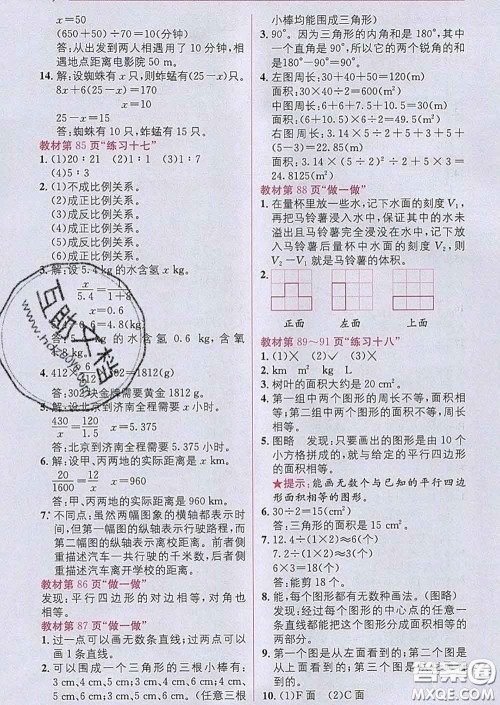 x=50
(650+50)÷70=10(分钟)
答:从出发到两人相遇用了 10 分钟,相
遇地点距离电影院 50 m。
14. 解:设蜘蛛有 x 只,则蚱蜢有(25-x)只。
8x+6(25-x)=170
x=10
25-x=15
答:蜘蛛有 10 只,蚱蜢有 15 只。
教材第 85 页“练习十七”
1. (1)20∶21 (2)1∶1 (3)1∶7
(4)5∶3
2. (1)不成比例关系。
(2)成正比例关系。
(3)成正比例关系。
(4)成反比例关系。
(5)成正比例关系。
(6)成反比例关系。
3. 解:设 5.4 kg 的水含氢 x kg。
x/5.4=1/(1+8)
x=0.6
=4.8(kg)
的水含氢 0.6 kg,含氧
kg。
4. 412 =1812(g)
答:302块金牌需要黄金 1812 g。
5. 解:设北京到济南全程需要 x 小时。
430/x=120/1.5 x=5.375
答:北京到济南全程需要 5.375 小时。
6. 解:设甲、丙两地的实际距离是 x km。
20/1600=12/x x=960
答:甲、丙两地的实际距离是 960 km。
7. 不同点:虽然两幅图象的横轴都表示时
间,但第一幅图的纵轴表示行驶路程,而
第二幅图的纵轴表示离校距离。前者侧
重描述汽车一共行驶的千米数,后者侧
重描述汽车离开学校的距离。
教材第 86 页“做一做”
发现:平行四边形的对边相等,对角也
相等。
教材第 87 页“做一做”
1. 过一点可以画无数条直线;过两点可以
画 1 条直线。
2. 可以围成一个三角形的三根小棒有:
3 cm,4 cm,5 cm;3 cm,4 cm,6 cm;
5 cm,6 cm;3 cm,5 cm,6 cm。(任意三根
小棒均能围成三角形)
3. 90°。因为三角形的内角和是 180°,其中
一个直角是 90°,所以它的两个锐角的和
是180°-90°=90°。
4. 左图周长:30+40+50=120(m)
面积:30×40÷2=600(m²)
中图周长:6+6+7.5+10.5=30(dm)
面积:(7.5+10.5)×6÷2=54(dm²)
右图周长:3.14×5÷2+5+3+3
=18.85(m)
面积:3.14×(5/2)²÷2+5×3=
24.8125(m²)
教材第 88 页“做一做”
1. 在量杯里放一些水,记下水面的刻度 V₁,
再把马铃薯浸入水中,保证其中的水未
溢出且马铃薯完全浸没在水中,记下放
入马铃薯后量杯中水面的刻度 V₂,则
V₂-V₁就是马铃薯的体积。
2.
正面 左面 上面
教材第 89~91 页“练习十八”
1. (1)× (2)√ (3)×
2. km m² kg L
3. 树叶的面积大约是 20 cm²。
4. 第一组中两个图形的周长不等,面积相
等;第二组中两个图形的面积不等,周长
相等。
5. 图略 发现:只要画出的图形是由 10 个
小方格拼成的,就与给定的平行四边形
的面积相等。
★提示:能画无数个与已知的平行四边
形面积相等的图形。
6. 30÷2=15(cm²)
答:三角形的面积是 15 cm²。
7. 12.4÷(1×2)≈6(个)
7.2÷(1×2)≈3(个)
6×3=18(个)
答:能剪 18 个。
8. 能,每个图形都有无数种画法。(图略)
发现:经过每个图形的中心点的任意一
条直线都能把这个图形分成面积相等的
两部分。
9. 第一个是从左面看到的;第二个是从上
面看到的;第三个是从正面看到的。
10. (1)F 面 (2)C 面
互助文档
答案圈
MXQE.COM